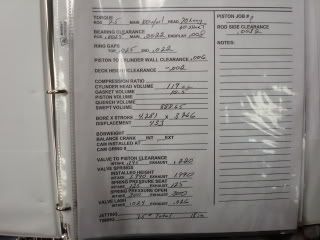 TORQUE
ROD 75 MAIN HEAD 70 Long
BEARING CLEARANCE
ROD .0025 MAIN .0022 ENDPLAY .008
RING GAPS
TOP .025 2ND .022
PISTON TO CYLINDER WALL CLEARANCE .006
DECK HEIGHT CLEARANCE -.002
COMPRESSION RATIO
CYLINDER HEAD VOLUME 119 cc
GASKET VOLUME
PISTON VOLUME
QUENCH VOLUME
SWEPT VOLUME
BORE X STROKE 4.281 x 3.766
DISPLACEMENT 433
BOBWEIGHT
BALANCE CRANK INT EXT
CAM INSTALLED AT
CAM GRIND #
VALVE TO PISTON CLEARANCE
INTAKE EXHAUST
VALVE SPRINGS
INSTALLED HEIGHT
INTAKE 1.990 EXHAUST 1.990
SPRING PRESSURE SEAT
INTAKE 125 EXHAUST 125
SPRING PRESSURE OPEN
INTAKE EXHAUST
VALVE LASH
INTAKE .024 EXHAUST .026
JETTING
TIMING 35° Total
PISTON JOB #
ROD SIDE CLEARANCE
NOTES: